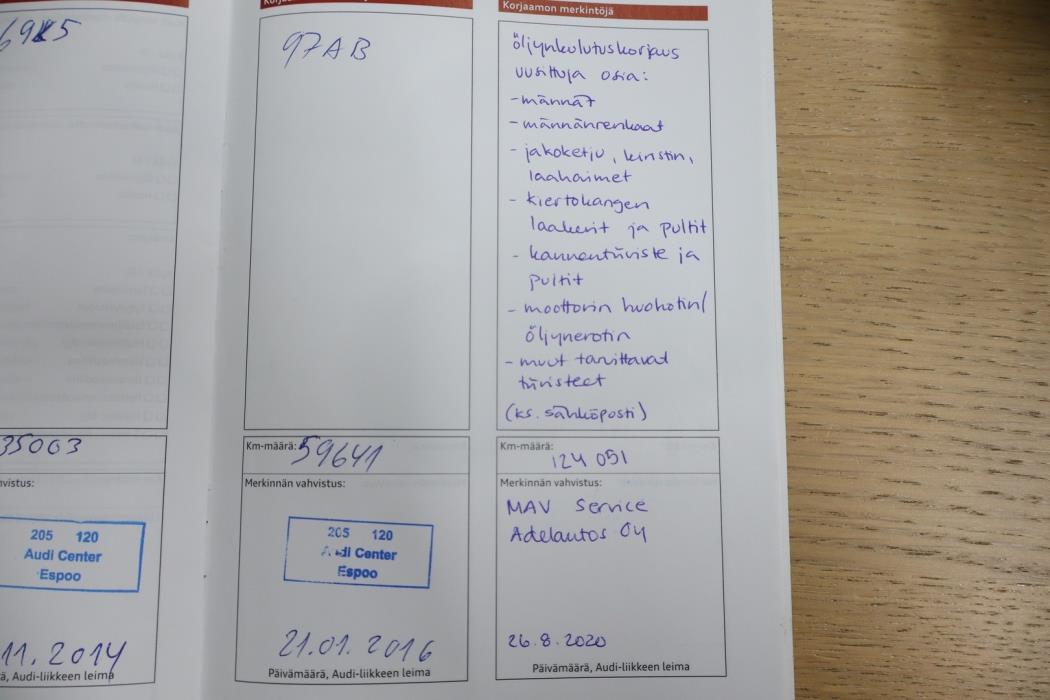 6945
35003
vistus:
205 120
Audi Center
Espoo
11. 2014
ä, Audi-liikkeen leima
97AB
Km-määrä: 59641
Merkinnän vahvistus:
205 120
Audi Center
Espoo
21.01. 2016
Päivämäärä, Audi-liikkeen leima
Korjaamon merkintöjä
öljynkulutuskorjaus
uusittuja osia:
- männät
- männänrenkaat
- jakoketju, kiristin,
laahaimet
- kiertokangen
laakerit ja pultit
- kannentiiviste ja
pultit
- moottorin huohotin/
öljynerotin
- muut tarvittavat
tiivisteet
(ks. sähköposti)
Km-määrä:
124 051
Merkinnän vahvistus:
MAV Service
Adelautos Oy
26.8.2020
Päivämäärä, Audi-liikkeen leima